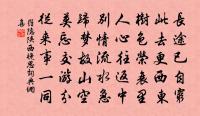 長途已自窮
此去更西東
樹色榮衰裏
人心往返中
別情流水急
歸夢故山空
莫忘交游分
從來事一同